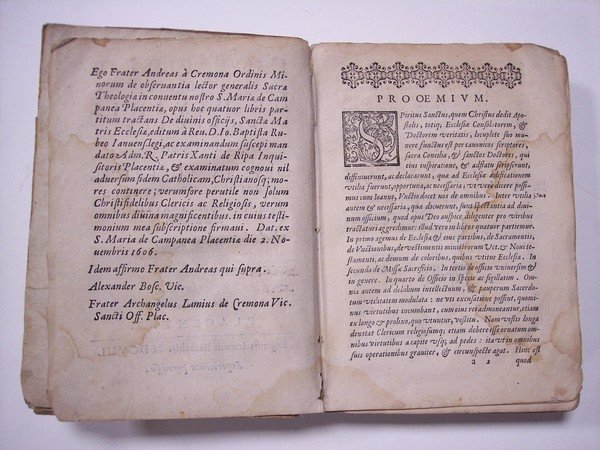 Ego Frater Andreas à Cremona Ordinis Mi-
norum de observantia lector generalis Sacræ
Theologiæ in conventu nostro S. Mariæ de Cam
panea Placentiæ, opus hoc quatuor libris par
titum tractans De divinis officijs, Sanctæ Ma
tris Ecclesiæ, editum à Reu. D. Io. Baptista Ru
beo Ianuensi, legi, ac examinandum suscepi man
dato Adm. R. Patris Xanti de Ripa Inqui
sitoris Placentiæ, & examinatum cognovi nil
adversum fidem Catholicam, Christianosq; mo-
res continere; verum fore perutile non solum
Christifidelibus Clericis ac Religiosis, verum
omnibus divina magnificentibus. in cuius testi-
monium mea subscriptione firmavi. Dat. ex
S. Maria de Campanea Placentiæ die 2. No-
uembris 1606.
Idem affirmo Frater Andreas qui supra.
Alexander Bosc. Vic.
Frater Archangelus Lamius de Cremona Vic.
Sancti Off. Plac.
PROOEMIVM.
SPiritus Sanctus, quem Christus dedit Apo-
stolis, totiq; Ecclesiæ Consultorem, &
Doctorem veritatis, locuplete suo mu-
nere functus est per canonicos scriptores,
Sacra Concilia, & sanctos Doctores, qui
eius inspiratione, & adflatu scripserunt,
diffinierunt, ac declararunt, quæ ad Ecclesiæ ædificationem
vtilia fuerunt, opportuna, ac necessaria; vt vere dicere possi-
mus cum Ioanne, Vnctio docet nos de omnibus. Inter vtilia
autem & necessaria, quæ docuerunt, sunt spectantia ad diui-
num officium, quod opus Deo auspice diligenter pro viribus
tractaturi aggredimur: illud vero in libros quatuor partimur.
In primo agemus de Ecclesia & eius partibus, de Sacramentis,
de Vnctionibus, de vestimentis ministrorum Vet. & Noui te-
stamenti, ac demum de coloribus, quibus vtitur Ecclesia. In
secundo de Missæ Sacrificio. In tertio de officio vniuersim &
in genere. In quarto de Officio in specie ac sigillatim. Gene-
ralem autem omnibus intelligentiam, & pauperum Sacerdo-
tum vtilitatem modulata: ne vti excusatione possint, quomi-
nus virtutibus incumbant, cuius rei admonentur, etiam
ex longo & prolixo, quo vtuntur, vestitu. Nam vestis longa
denotat Clericum religiosumq; etiam debere esse ornatum omni-
bus virtutibus a capite vsq; ad pedes: ita vt in omnibus
suis operationibus grauiter, & circunspecte agat. Hinc est
a 2 quod